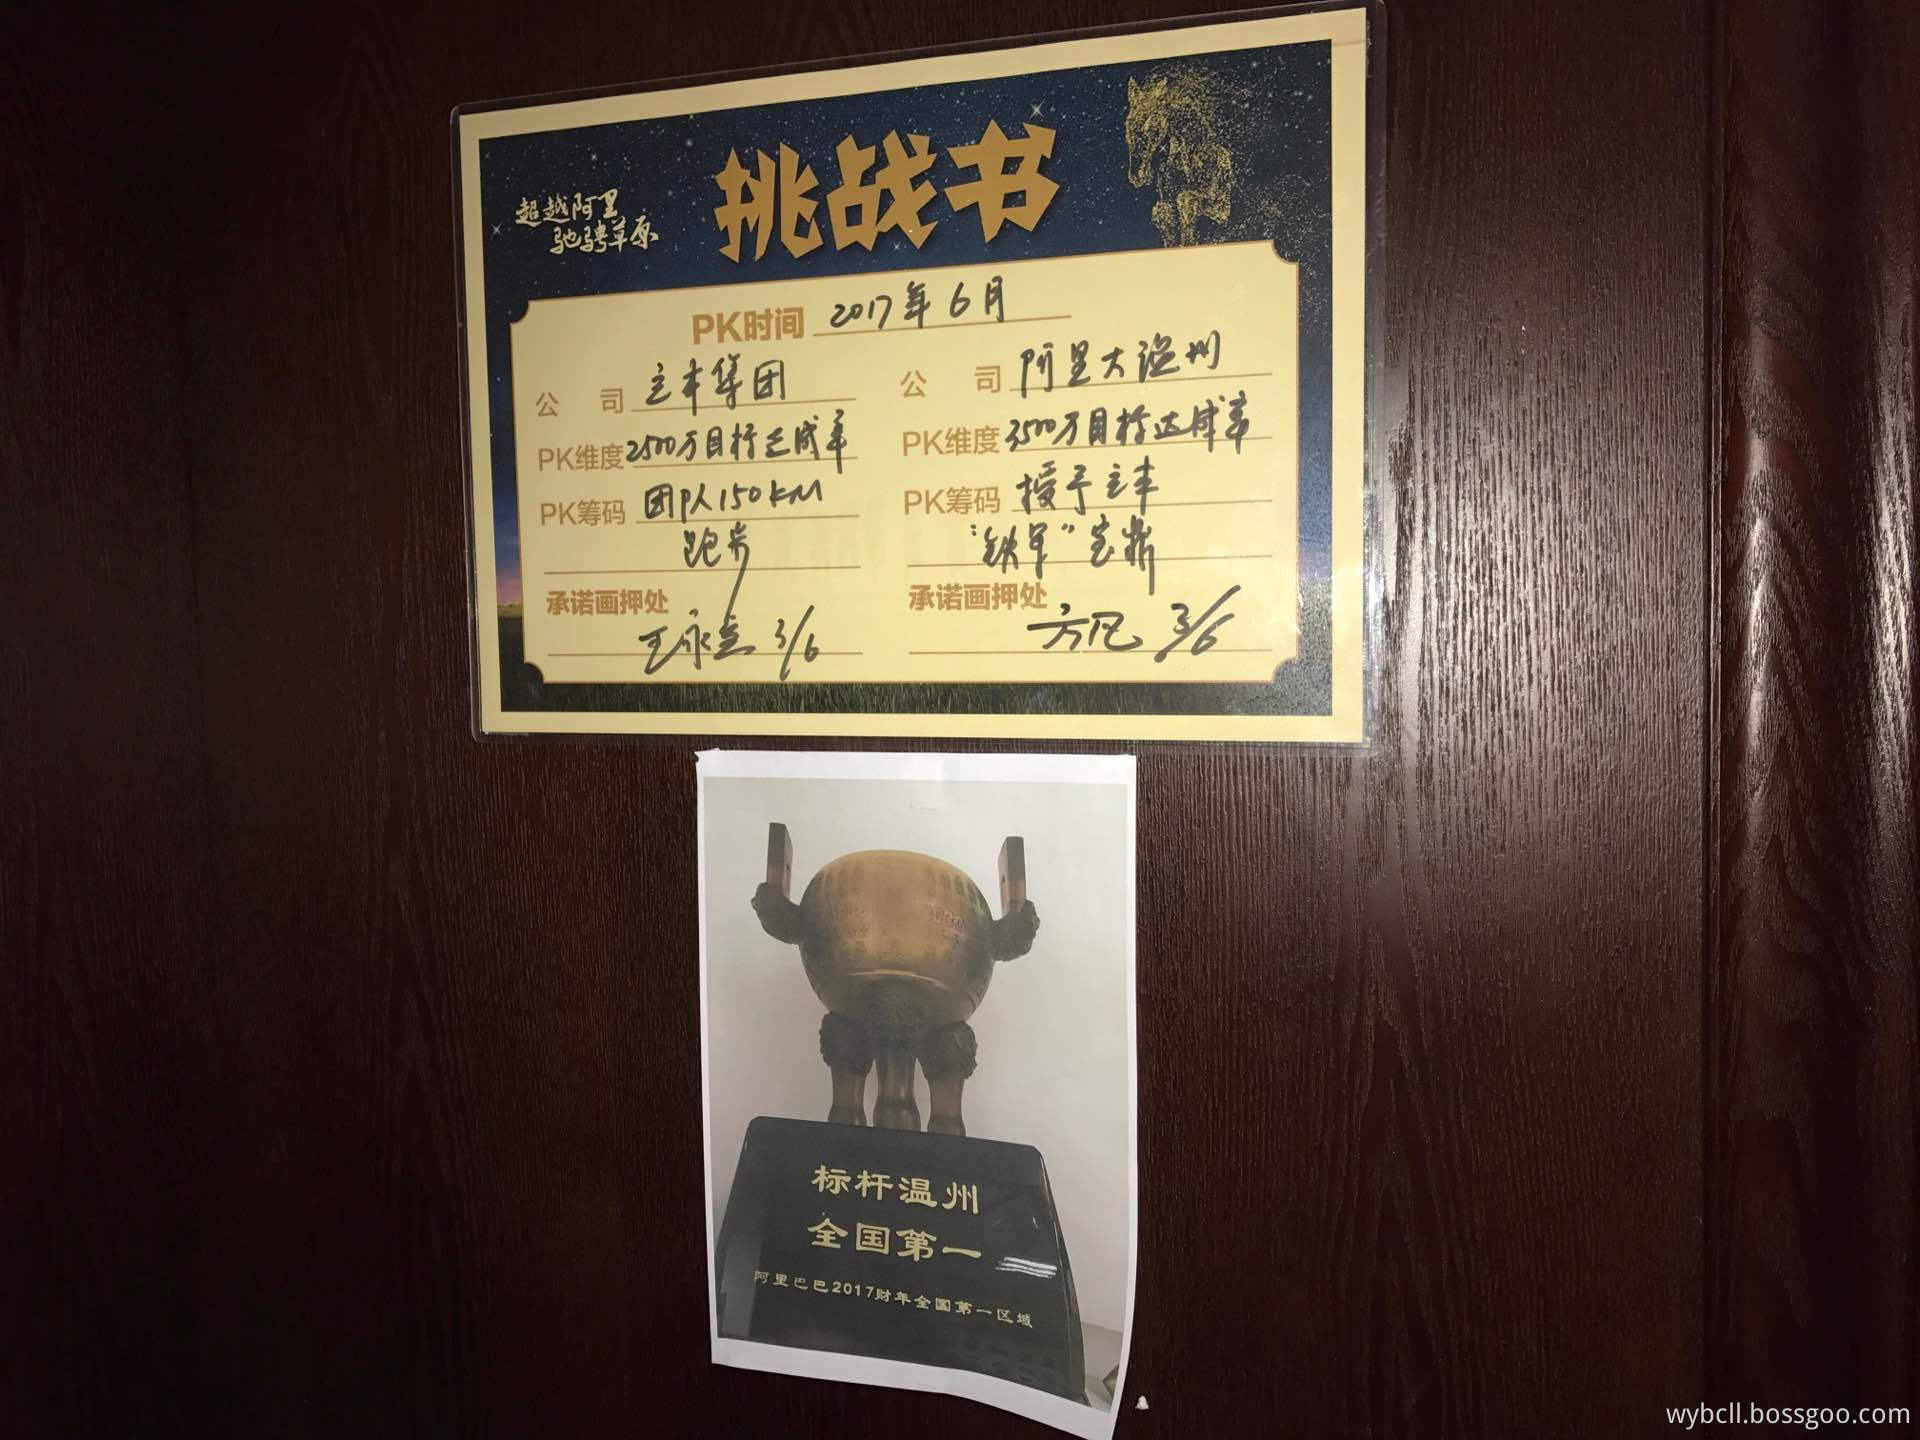 挑战书
超越阿里
驰骋草原
PK时间 2017年6月
公司 立丰集团
PK维度 2500万目标达成率
PK筹码 团队150KM
跑步
承诺画押处
王永 3/6
公司 阿里大温州
PK维度 3500万目标达成率
PK筹码 授予立丰
“铁军”宝鼎
承诺画押处
方凡 3/6
标杆温州
全国第一
阿里巴巴2017财年全国第一区域
wybcll.bossgoo.com